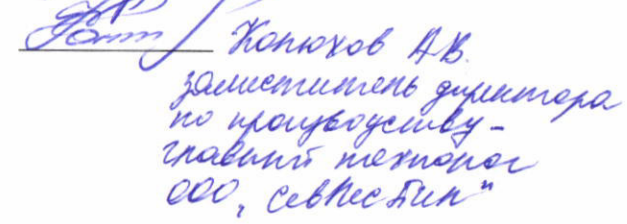 Конюхов А.В.
заместитель директора
по производству-
главный технолог
ООО "СевЛесПил"